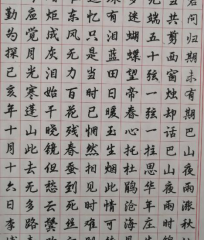 问归期未有期巴山夜雨涨秋
共剪西窗烛却话巴山夜雨
无端五十弦一弦一柱思华年庄
迷蝴蝶望帝春心托杜鹃沧海月
有泪蓝田日暖玉生烟此情可
忆只是当时已惘然相见时难
东风无力百花残春蚕到死丝
炬成灰泪始干晓镜但愁云
应觉月光寒蓬山此去无多路
勤为探己亥年十月十六日李